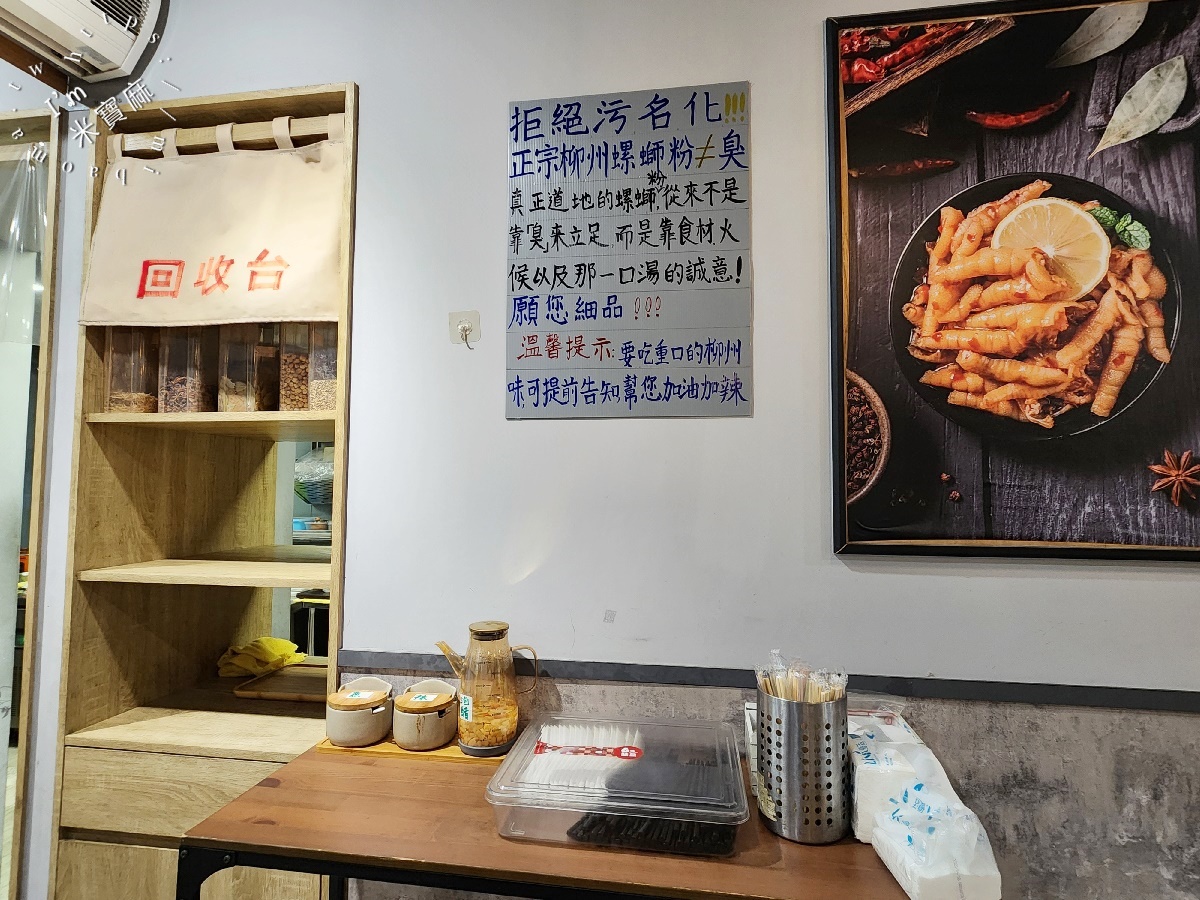 I'm
米寶麻
回收台
拒絕污名化!!!
正宗柳州螺螄粉≠臭
真正道地的螺螄粉,從來不是
靠"臭"來立足,而是靠食材火
候以及那一口湯的誠意!
願您細品!!!
溫馨提示:要吃重口的柳州
味,可提前告知幫您加油加辣